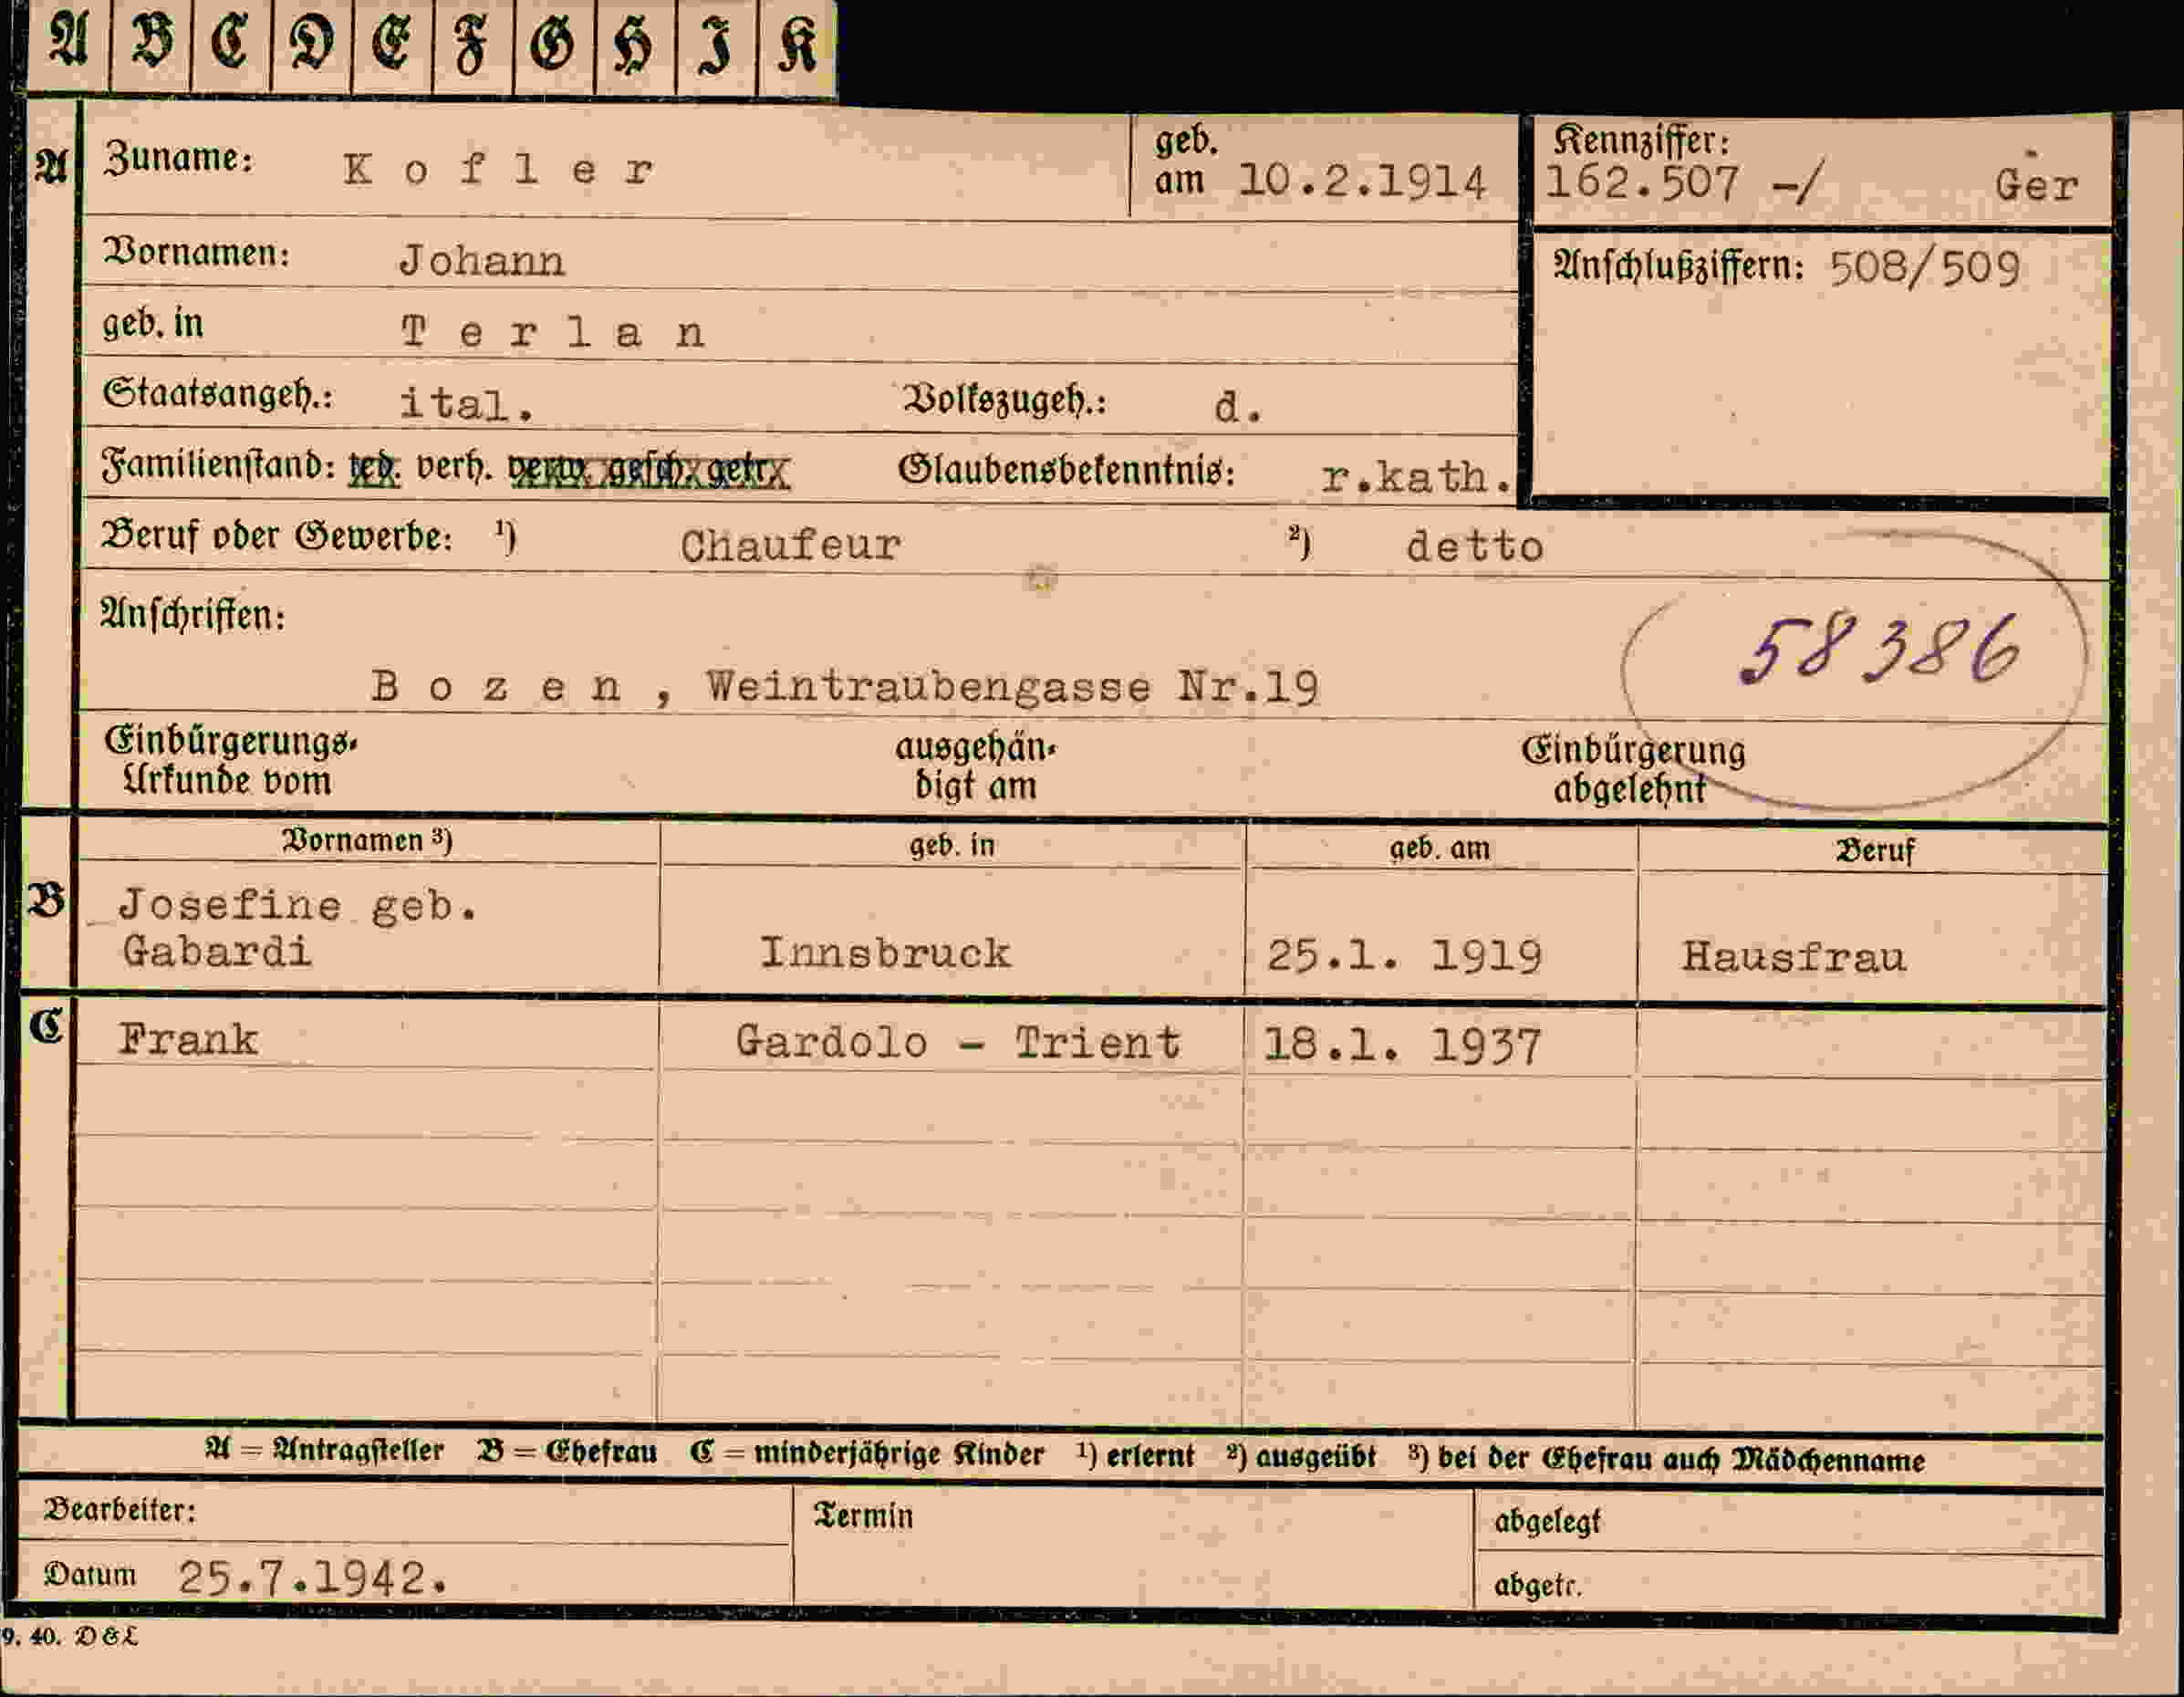 A B C D E F G H I K
A Zuname: Kofler geb. am 10.2.1914 Kennziffer: 162.507 -/ Ger
Vornamen: Johann Anschlußziffern: 508/509
geb. in Terlan
Staatsangeh.: ital. Volkszugeh.: d.
Familienstand: led. verh. verw. gesch. getr. Glaubensbekenntnis: r.kath.
Beruf oder Gewerbe: ¹) Chaufeur ²) detto
Anschriften:
58386
Bozen, Weintraubengasse Nr.19
Einbürgerungs- ausgehän- Einbürgerung
Urkunde vom digt am abgelehnt
Vornamen ³) geb. in geb. am Beruf
B Josefine geb.
Gabardi Innsbruck 25.1. 1919 Hausfrau
C Frank Gardolo - Trient 18.1. 1937
A = Antragsteller B = Ehefrau C = minderjährige Kinder ¹) erlernt ²) ausgeübt ³) bei der Ehefrau auch Mädchenname
Bearbeiter: Termin abgelegt
Datum 25.7.1942. abgetr.
9. 40. D&L